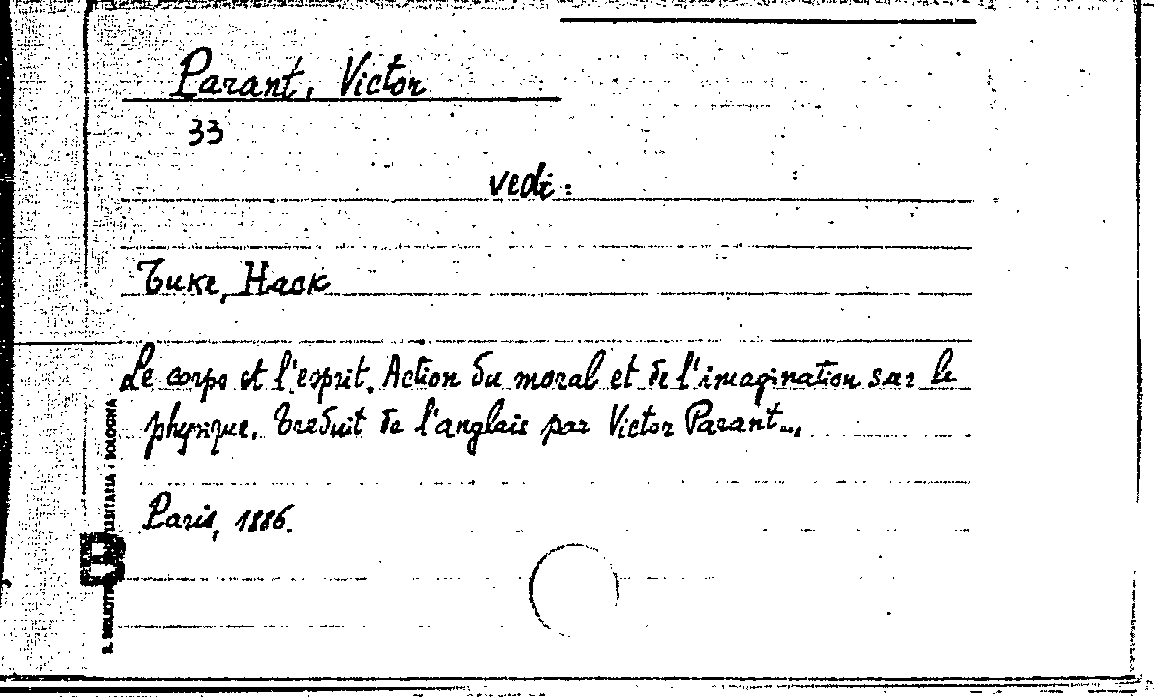 Parant, Victor
33
vedi:
Tuke, Hack
Le corps et l'esprit. Action du moral et de l'imagination sur le
physique. Traduit de l'anglais par Victor Parant...,
Paris, 1886.
BOLOGNA